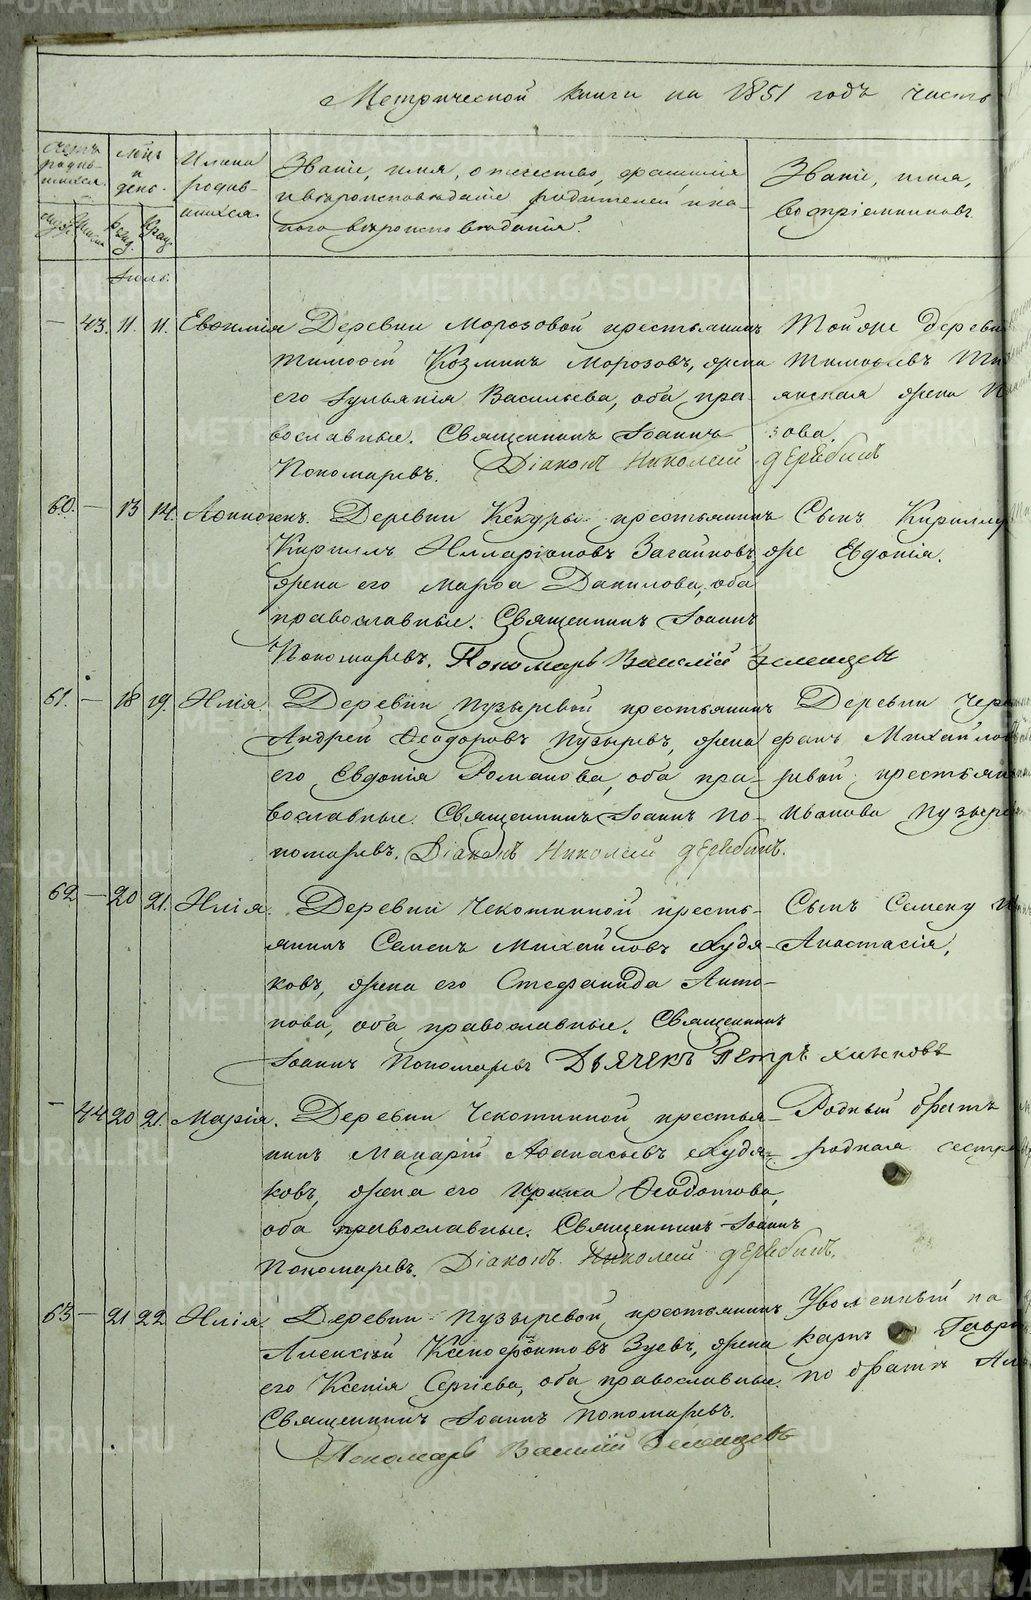 Метрической книги на 1851 годъ часть
Счетъ родившихся.
Мѣцъ и день.
Имена родившихся.
Званіе, имя, отчество, фамилія
и вѣроисповѣданіе родителей и ка-
кого вѣроисповѣданія.
Званіе, имя,
воспріемниковъ.
Іюль.
— 43. 11. 11. Евфимія Деревни Морозовой крестьянинъ
Тимофей Козминъ Морозовъ, жена
его Іульянія Васильева, оба пра-
вославные. Священникъ Іоаннъ
Пономаревъ. Діаконъ Николай Дерябинъ
Той же дерев
Тимофеевъ
жена
зова.
60. — 13 14. Афиноген. Деревни Кекуры крестьянинъ
Кириллъ Илларіоновъ Загайновъ,
жена его Марфа Данилова, оба
православные. Священникъ Іоаннъ
Пономаревъ. Пономарь Василій Зеленцевъ
Сынъ Кириллу
же Евдокія.
61. — 18 19. Илія. Деревни Пузыревой крестьянинъ
Андрей Феодоровъ Пузыревъ, жена
его Евдокія Романова, оба пра-
вославные. Священникъ Іоаннъ По-
номаревъ. Діаконъ Николай Дерябинъ.
Деревни Чер
Михайлов
крестьян
Иванова Пузыре
62 — 20 21. Илія. Деревни Чекоткиной кресть-
янинъ Семенъ Михайловъ Худя-
ковъ, жена его Стефанида Анто-
нова, оба православные. Священникъ
Іоаннъ Пономаревъ Дьячекъ Петръ Хионовъ
Сынъ Семену
Анастасія,
— 44 20 21. Марія. Деревни Чекоткиной крестья-
нинъ Макарій Афанасьевъ Худя-
ковъ, жена его Ирина Феодотова,
оба православные. Священникъ Іоаннъ
Пономаревъ. Діаконъ Николай Дерябинъ.
Родный братъ
родная сестра
63 — 21 22 Илія. Деревни Пузыревой, крестьянинъ
Алексѣй Ксенофонтовъ Зуевъ, жена
его Ксенія Сергіева, оба православные.
Священникъ Іоаннъ Пономаревъ.
Пономарь Василій Зеленцевъ
Уволенный
карь Гаври
METRIKI.GASO-URAL.RU